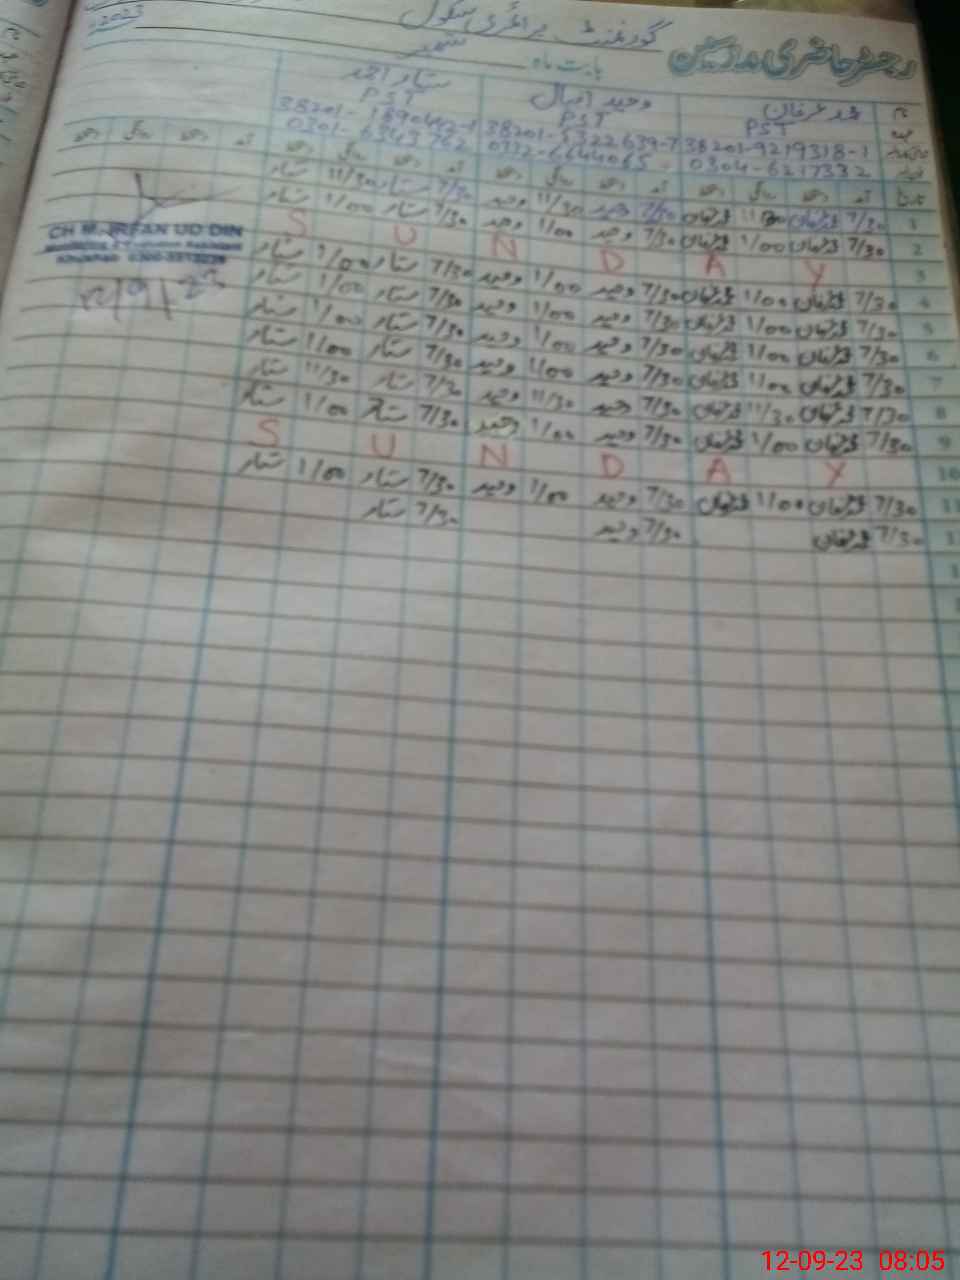 2023
گورنمنٹ پرائمری سکول
رجسٹر حاضری مدرسین
بابت ماہ ستمبر
نام محمد عرفان وحید اقبال ستار احمد
عہدہ PST PST PST
38201-9219318-1 38201-5322639-7
0304-6217332 0312-6644065 0301-6343762
تاریخ آمد دستخط روانگی دستخط آمد دستخط روانگی دستخط آمد دستخط روانگی دستخط آمد دستخط روانگی دستخط
1 7/30 عرفان 11/30 عرفان 7/30 وحید 11/30 وحید 7/30 ستار 11/30 ستار
2 7/30 عرفان 1/00 عرفان 7/30 وحید 1/00 وحید 7/30 ستار 1/00 ستار
3 S U N D A Y
4 7/30 عرفان 1/00 عرفان 7/30 وحید 1/00 وحید 7/30 ستار 1/00 ستار
5 7/30 عرفان 1/00 عرفان 7/30 وحید 1/00 وحید 7/30 ستار 1/00 ستار
6 7/30 عرفان 1/00 عرفان 7/30 وحید 1/00 وحید 7/30 ستار 1/00 ستار
7 7/30 عرفان 1/00 عرفان 7/30 وحید 1/00 وحید 7/30 ستار 1/00 ستار
8 7/30 عرفان 11/30 عرفان 7/30 وحید 11/30 وحید 7/30 ستار 11/30 ستار
9 7/30 عرفان 1/00 عرفان 7/30 وحید 1/00 وحید 7/30 ستار 1/00 ستار
10 S U N D A Y
11 7/30 عرفان 1/00 عرفان 7/30 وحید 1/00 وحید 7/30 ستار 1/00 ستار
7/30 عرفان 7/30 وحید 7/30 ستار
CH M. IRFAN UD DIN
Monitoring & Evaluation Assistant
12/9/23
12-09-23 08:05